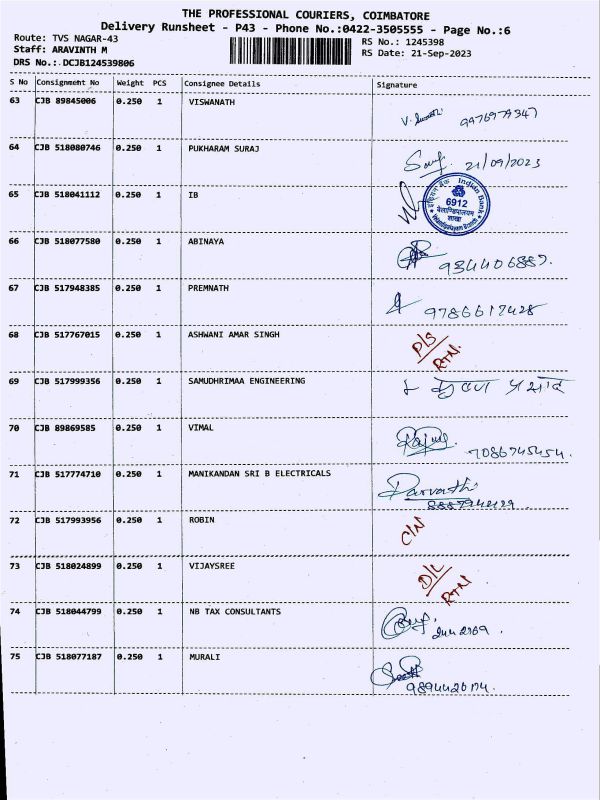 THE PROFESSIONAL COURIERS, COIMBATORE
Delivery Runsheet - P43 - Phone No.:0422-3505555 - Page No.:6
Route: TVS NAGAR-43
RS No.: 1245398
Staff: ARAVINTH M
RS Date: 21-Sep-2023
DRS No.: DCJB124539806
S No Consignment No Weight PCS Consignee Details Signature
63 CJB 89845006 0.250 1 VISWANATH
64 CJB 518080746 0.250 1 PUKHARAM SURAJ 21/09/2023
65 CJB 518041112 0.250 1 IB
इंडियन बैंक Indian Bank
6912
शाखा
66 CJB 518077580 0.250 1 ABINAYA 9344406887.
67 CJB 517948385 0.250 1 PREMNATH 9786617428
68 CJB 517767015 0.250 1 ASHWANI AMAR SINGH D/S
RTN
69 CJB 517999356 0.250 1 SAMUDHRIMAA ENGINEERING
70 CJB 89869585 0.250 1 VIMAL 7086745454.
71 CJB 517774710 0.250 1 MANIKANDAN SRI B ELECTRICALS Parvathi
72 CJB 517993956 0.250 1 ROBIN C/N
73 CJB 518024899 0.250 1 VIJAYSREE D/L
RTN
74 CJB 518044799 0.250 1 NB TAX CONSULTANTS
75 CJB 518077187 0.250 1 MURALI